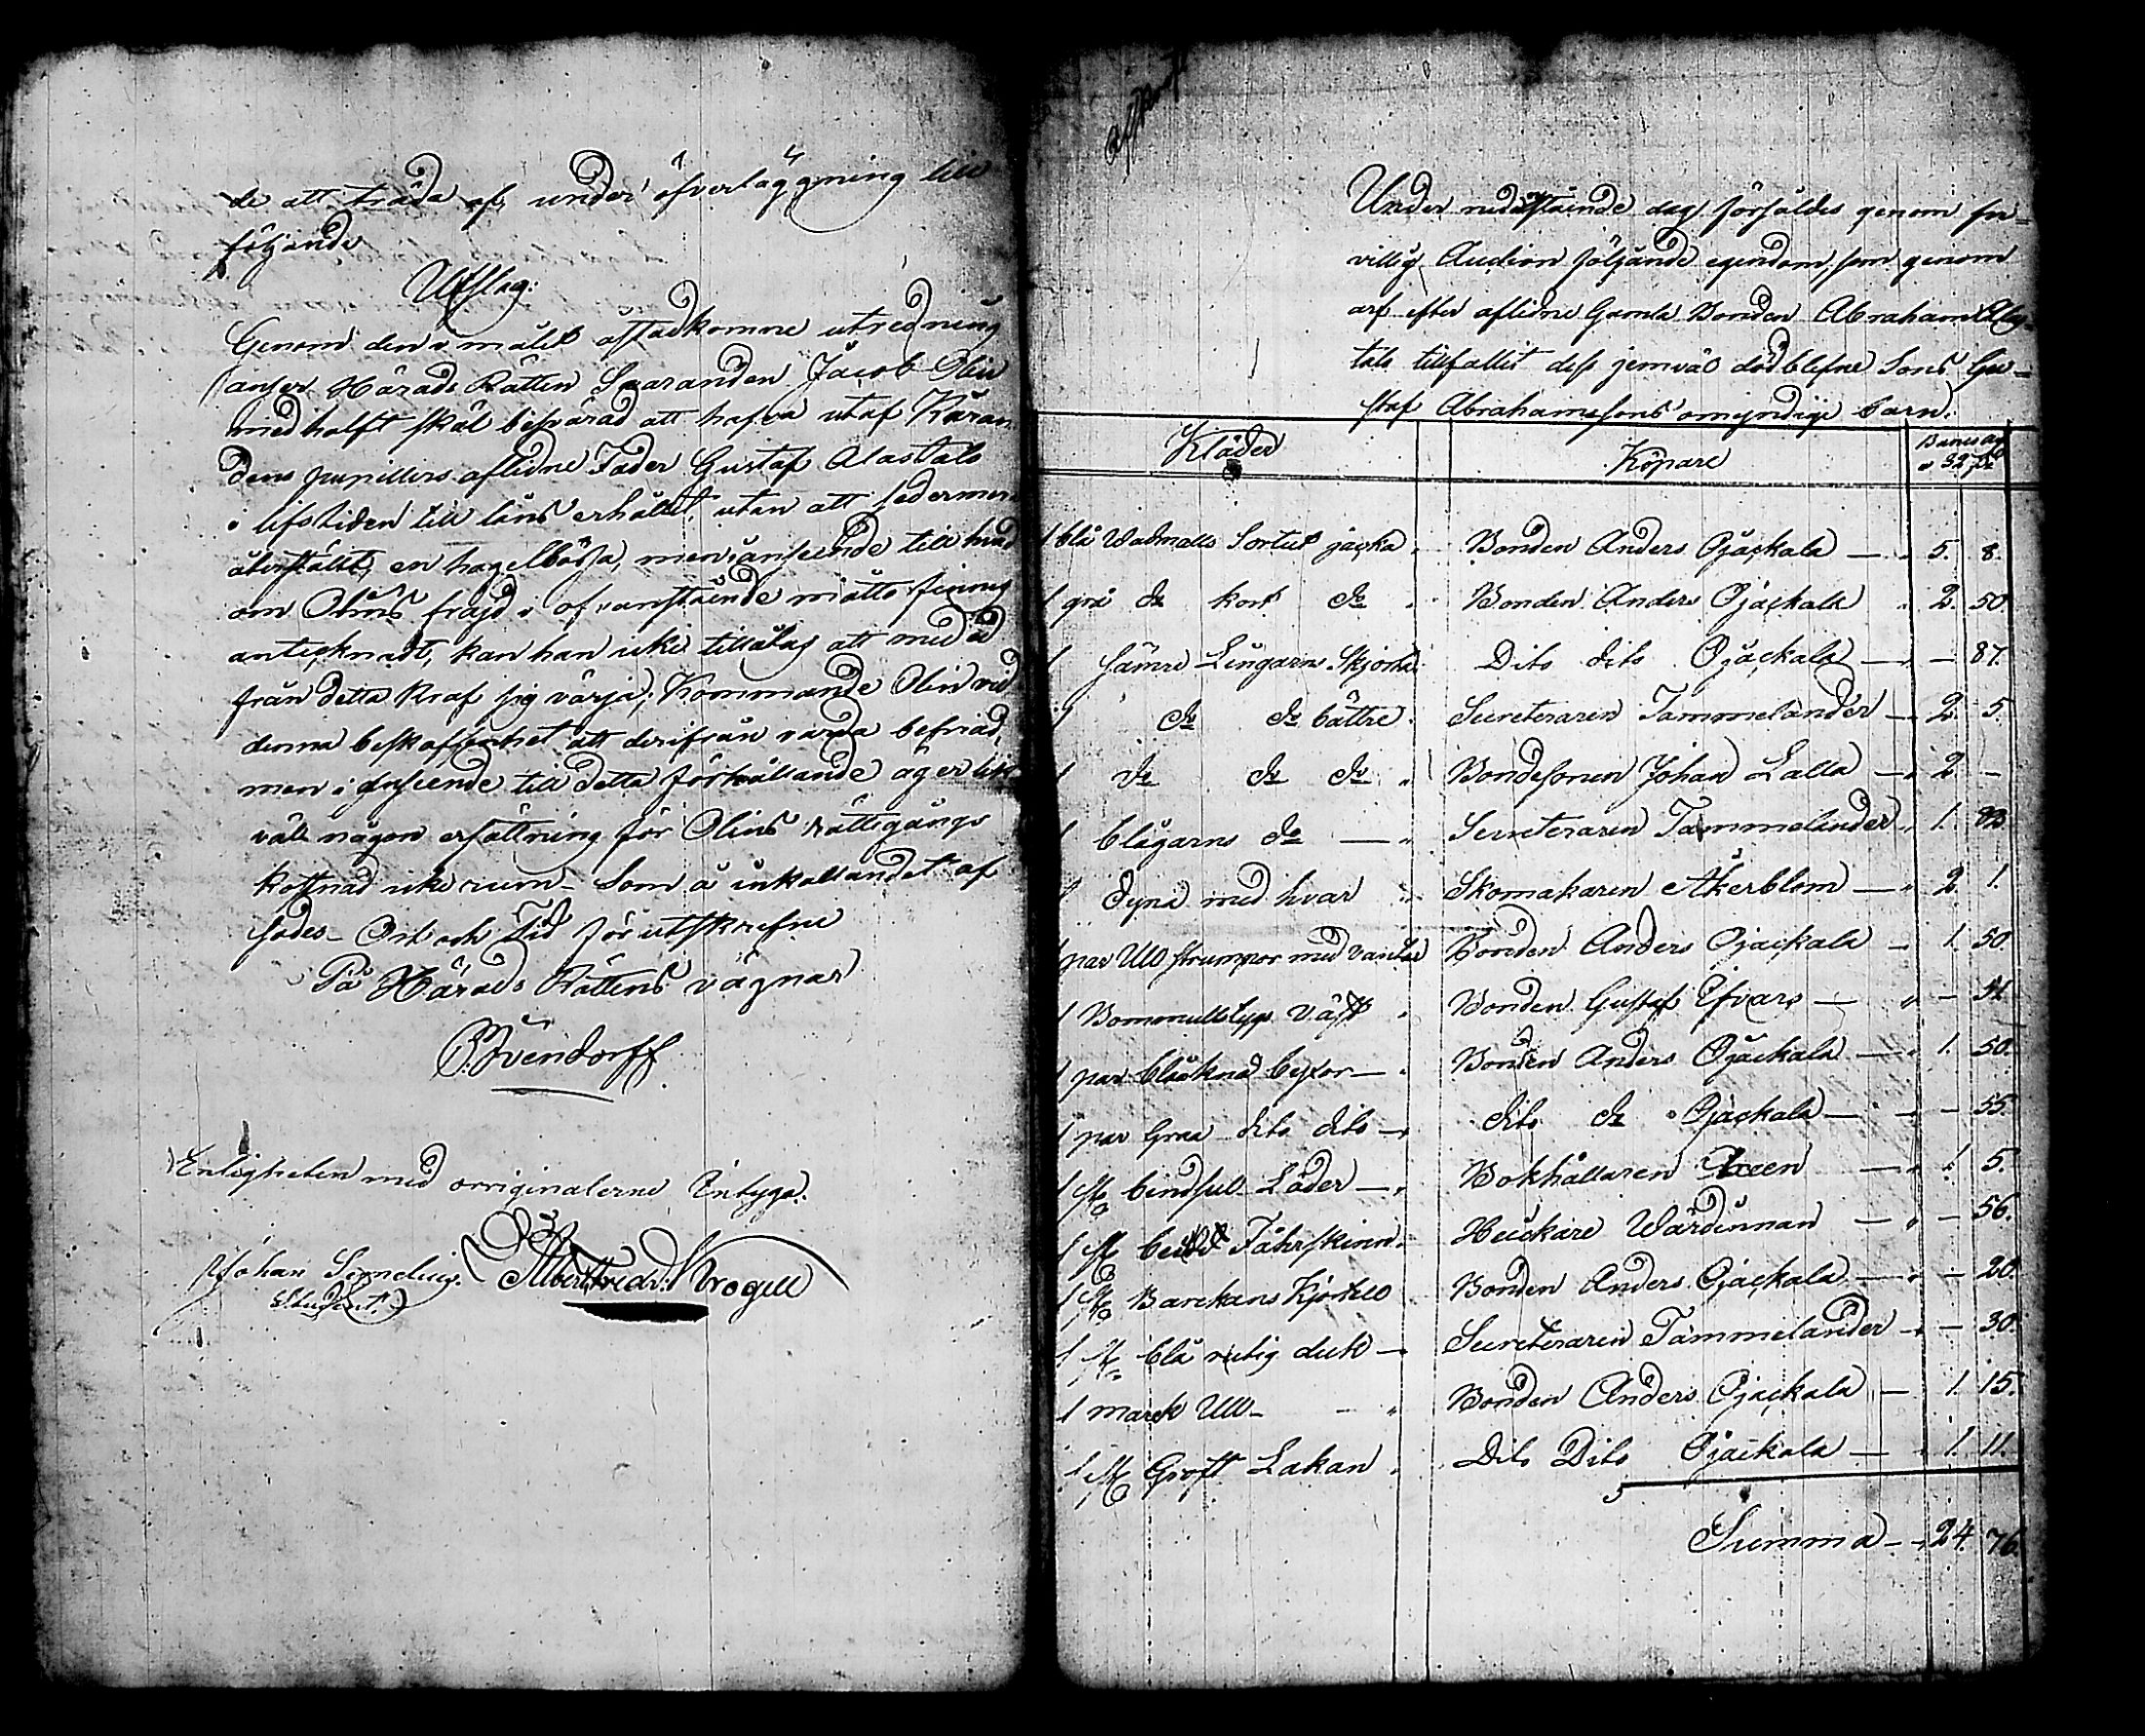 de att träda af, under öfverläggning till
följande
Utslag:
Genom den i målet åstadkomne utredning
anser Härads Rätten Svaranden Jacob Olin
med halft skäl besvärad att hafva utaf Käran
dens pupillers aflidne Fader Gustaf Alastalo
i lifstiden till låns erhållit, utan att sedermera
återstält, en hagelbössa, men i anseende till hvad
om Olins frägd i ofvanstående måtto finnes
antecknadt, kan han icke tillåtas att med ed
från detta kraf sig värja; Kommande Olin vid
denna beskaffenhet att derifrån varda befriad,
men i anseende till detta förhållande äger lik
väll någon ersättning för Olins rättegångs
kostnad icke rum. Som å
sades. Ort och Tid förutskrefne
På Härads Rättens vägnar
Enligheten med orriginalerne Intyga.
Johan
Student.
Albert Fredr: Krogell
Under nedanstående dag försåldes genom fri-
villig Auction följande egendom som genom
arf efter aflidne Gamla Bonden Abraham Alas-
talo tillfallit dess jemväl dödblefne Sons Gu-
staf Abrahamssons omyndige barn.
Kläder Köpare
1 blå Wadmalls Sortut jacka Bonden Anders Ojackala — 5. 8.
1 grå do kort do Bonden Anders Ojackala 2. 50.
1 sämre Lingarns Skjorta Dito dito Ojackala — — 87.
1 do do bättre Secreteraren Tammelander — 2. 5.
1 do do do Bondesonen Johan Lalla — 2 —
1 blågarns do — Secreteraren Tammelander 1.
1 dyna med hvar Skomakaren Åkerblom — 2. 1.
1 par Ull strumpor med vantar Bonden Anders Ojackala — 1. 50.
1 Bommullstygs väst Bonden Gustaf Efvars — — 51
1 par blåcknad byxor — Bonden Anders Ojackala — 1. 50.
1 par Graa dito dito — dito do Ojackala — — 55.
1 st bindsull Läder — Bokhållaren — 1. 5.
1 st Fåhrskinn Wärdinnan — — 56.
1 st Barckans Kjortell Bonden Anders Ojackala — — 20.
1 st blå rutig duk — Secreteraren Tammelander — — 30.
1 marck Ull — Bonden Anders Ojackala — 1. 15.
1 st Groft Lakan Dito Dito Ojackala — 1. 11.
Summa — 24. 76.